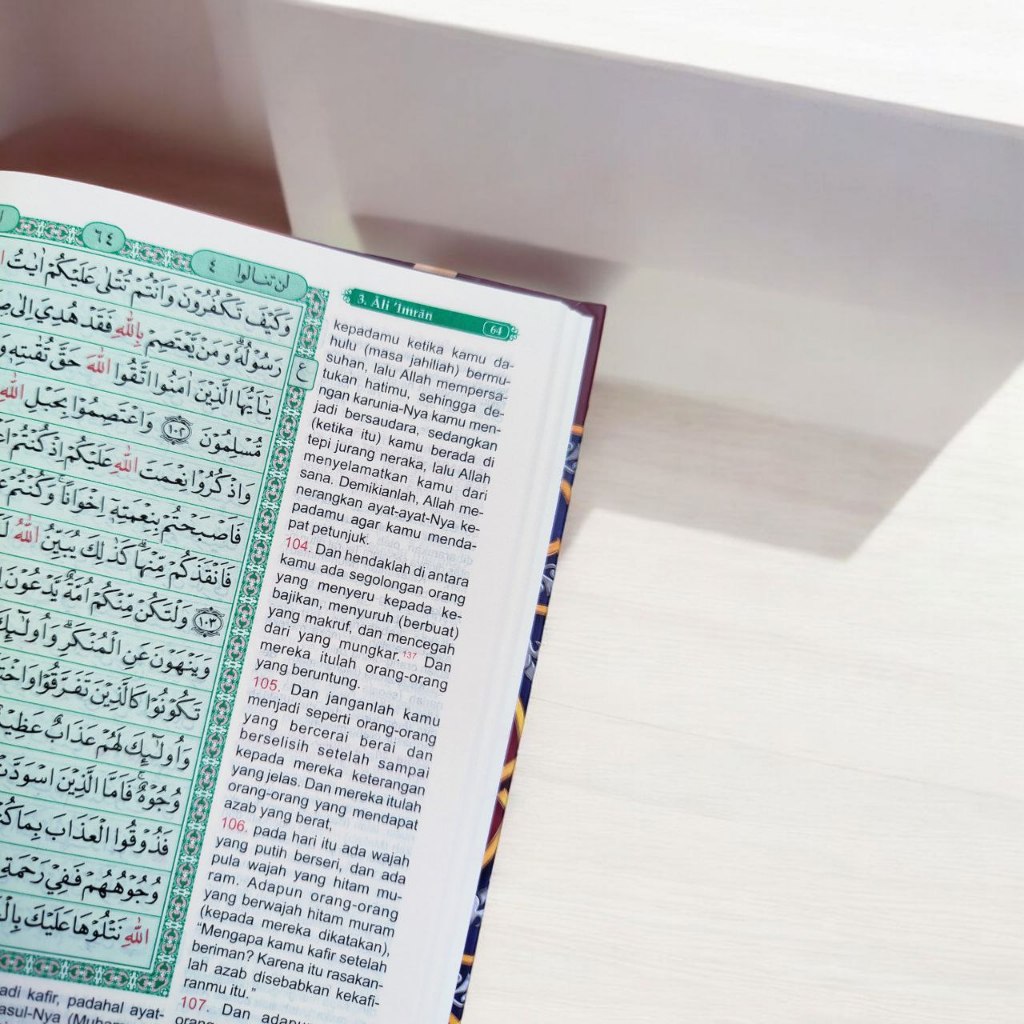 ٦٤
لن تنالوا ٤
وَكَيْفَ تَكْفُرُوْنَ وَاَنْتُمْ تُتْلٰى عَلَيْكُمْ اٰيٰتُ
رَسُوْلُهٗ وَمَنْ يَّعْتَصِمْ بِاللّٰهِ فَقَدْ هُدِيَ اِلٰى
ع
يٰٓاَيُّهَا الَّذِيْنَ اٰمَنُوا اتَّقُوا اللّٰهَ حَقَّ تُقٰىتِهٖ
مُّسْلِمُوْنَ ١٠٢ وَاعْتَصِمُوْا بِحَبْلِ اللّٰهِ
وَاذْكُرُوْا نِعْمَتَ اللّٰهِ عَلَيْكُمْ اِذْ كُنْتُمْ
فَاَصْبَحْتُمْ بِنِعْمَتِهٖٓ اِخْوَانًاۚ وَكُنْتُمْ
فَاَنْقَذَكُمْ مِّنْهَاۗ كَذٰلِكَ يُبَيِّنُ اللّٰهُ
١٠٣ وَلْتَكُنْ مِّنْكُمْ اُمَّةٌ يَّدْعُوْنَ
وَيَنْهَوْنَ عَنِ الْمُنْكَرِۗ وَاُولٰۤىِٕكَ
تَكُوْنُوْا كَالَّذِيْنَ تَفَرَّقُوْا
وَاُولٰۤىِٕكَ لَهُمْ عَذَابٌ
وُجُوْهٌۚ فَاَمَّا الَّذِيْنَ اسْوَدَّتْ
فَذُوْقُوا الْعَذَابَ بِمَا
وُجُوْهُهُمْ فَفِيْ رَحْمَةِ
اللّٰهِ نَتْلُوْهَا عَلَيْكَ
adi kafir, padahal ayat-
asul-Nya
3. Āli ‘Imrān 64
kepadamu ketika kamu da-
hulu (masa jahiliah) bermu-
suhan, lalu Allah mempersa-
tukan hatimu, sehingga de-
ngan karunia-Nya kamu men-
jadi bersaudara, sedangkan
(ketika itu) kamu berada di
tepi jurang neraka, lalu Allah
menyelamatkan kamu dari
sana. Demikianlah, Allah me-
nerangkan ayat-ayat-Nya ke-
padamu agar kamu menda-
pat petunjuk.
104. Dan hendaklah di antara
kamu ada segolongan orang
yang menyeru kepada ke-
bajikan, menyuruh (berbuat)
yang makruf, dan mencegah
dari yang mungkar.137 Dan
mereka itulah orang-orang
yang beruntung.
105. Dan janganlah kamu
menjadi seperti orang-orang
yang bercerai berai dan
berselisih setelah sampai
kepada mereka keterangan
yang jelas. Dan mereka itulah
orang-orang yang mendapat
azab yang berat,
106. pada hari itu ada wajah
yang putih berseri, dan ada
pula wajah yang hitam mu-
ram. Adapun orang-orang
yang berwajah hitam muram
(kepada mereka dikatakan),
“Mengapa kamu kafir setelah
beriman? Karena itu rasakan-
lah azab disebabkan kekafi-
ranmu itu.”
107. Dan